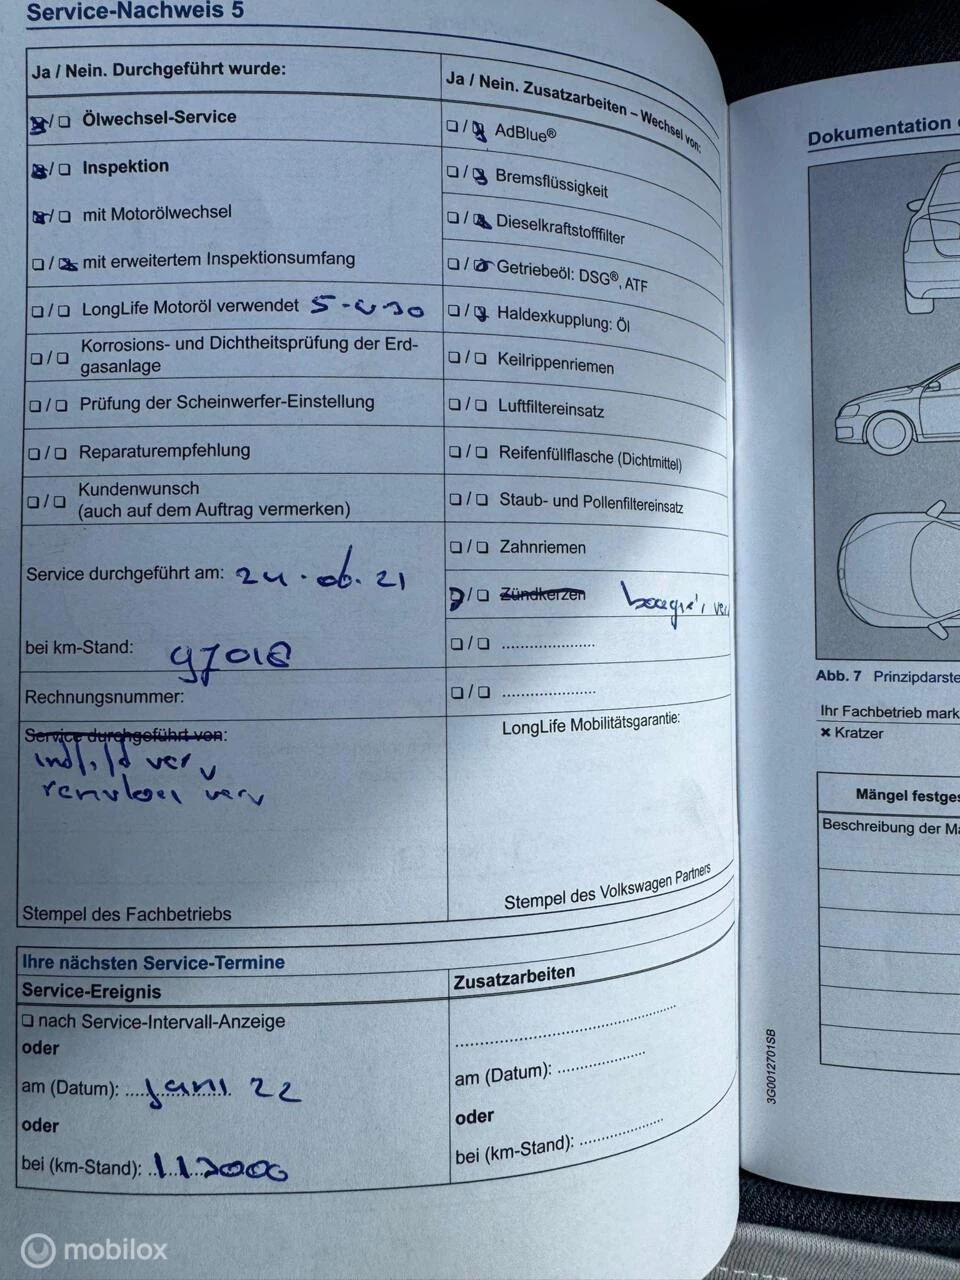 Service-Nachweis 5
Ja / Nein. Durchgeführt wurde:
☒/☐ Ölwechsel-Service
☒/☐ Inspektion
☒/☐ mit Motorölwechsel
☐/☒ mit erweitertem Inspektionsumfang
☐/☐ LongLife Motoröl verwendet 5-w-30
☐/☐ Korrosions- und Dichtheitsprüfung der Erd-
gasanlage
☐/☐ Prüfung der Scheinwerfer-Einstellung
☐/☐ Reparaturempfehlung
☐/☐ Kundenwunsch
(auch auf dem Auftrag vermerken)
Service durchgeführt am: 24.06.21
bei km-Stand: 97018
Rechnungsnummer:
Service durchgeführt von:
verv
verv
Stempel des Fachbetriebs
Ja / Nein. Zusatzarbeiten – Wechsel von:
☐/☒ AdBlue®
☐/☒ Bremsflüssigkeit
☐/☒ Dieselkraftstofffilter
☐/☒ Getriebeöl: DSG®, ATF
☐/☒ Haldexkupplung: Öl
☐/☐ Keilrippenriemen
☐/☐ Luftfiltereinsatz
☐/☐ Reifenfüllflasche (Dichtmittel)
☐/☐ Staub- und Pollenfiltereinsatz
☐/☐ Zahnriemen
☒/☐ Zündkerzen bougie's
☐/☐ .....................
☐/☐ .....................
LongLife Mobilitätsgarantie:
Stempel des Volkswagen Partners
Ihre nächsten Service-Termine
Service-Ereignis
☐ nach Service-Intervall-Anzeige
oder
am (Datum): Juni 22
oder
bei (km-Stand): 112000
Zusatzarbeiten
am (Datum): ................
oder
bei (km-Stand): ................
Dokumentation
Abb. 7 Prinzipdarste
Ihr Fachbetrieb mark
✖ Kratzer
Mängel festges
Beschreibung der Mä
3G0012701SB
mobilox